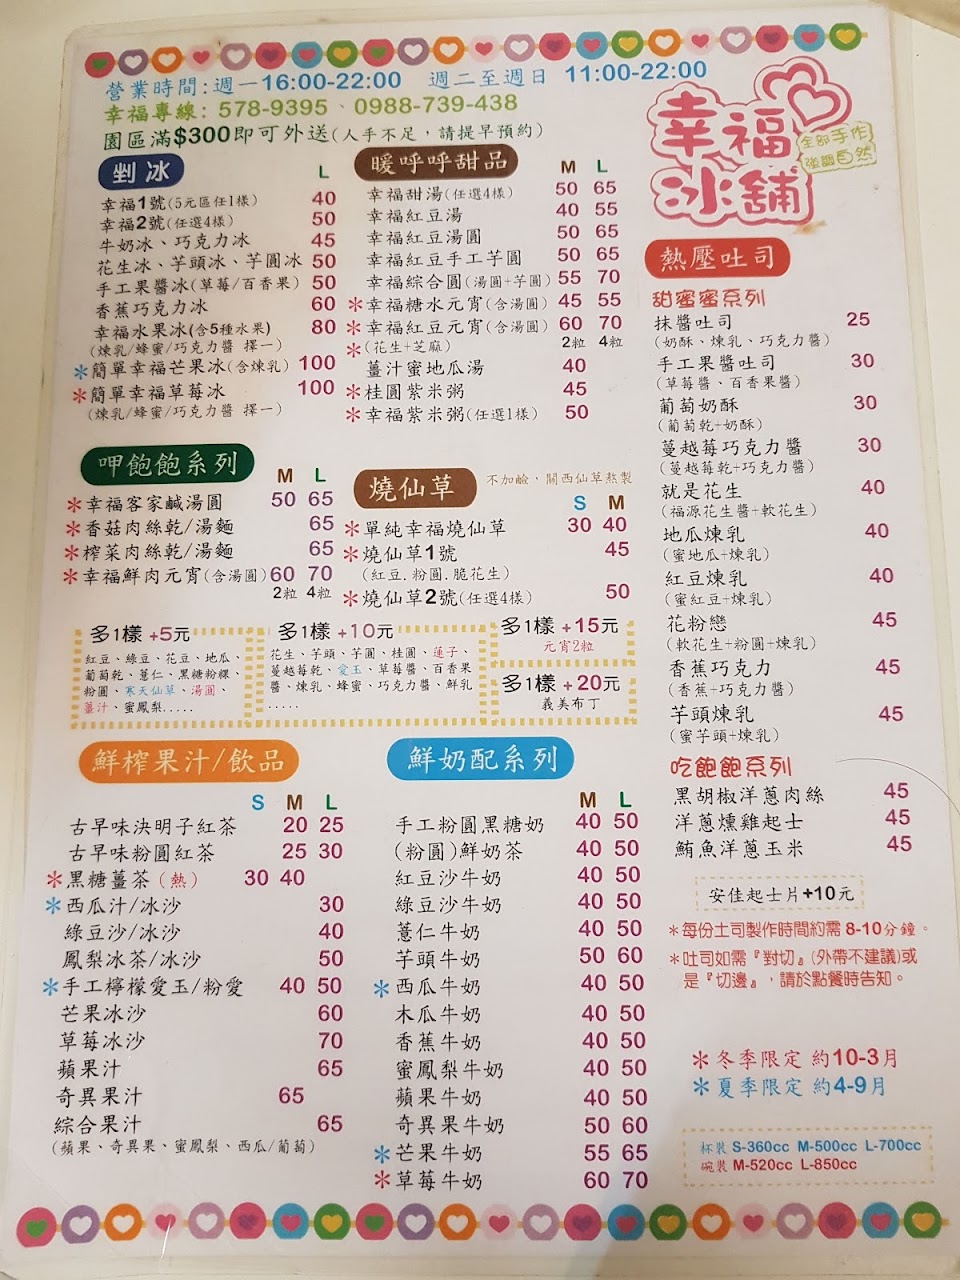 營業時間:週一16:00-22:00 週二至週日 11:00-22:00
幸福專線: 578-9395、0988-739-438
園區滿$300即可外送(人手不足，請提早預約)
幸福冰舖
全部手作
強調自然
剉冰
L
幸福1號(5元區任1樣) 40
幸福2號(任選4樣) 50
牛奶冰、巧克力冰 45
花生冰、芋頭冰、芋圓冰 50
手工果醬冰(草莓/百香果) 50
香蕉巧克力冰 60
幸福水果冰(含5種水果) 80
(煉乳/蜂蜜/巧克力醬 擇一)
*簡單幸福芒果冰(含煉乳) 100
*簡單幸福草莓冰 100
(煉乳/蜂蜜/巧克力醬 擇一)
暖呼呼甜品
M L
幸福甜湯(任選4樣) 50 65
幸福紅豆湯 40 55
幸福紅豆湯圓 50 65
幸福紅豆手工芋圓 50 65
幸福綜合圓(湯圓+芋圓) 55 70
*幸福糖水元宵(含湯圓) 45 55
*幸福紅豆元宵(含湯圓) 60 70
*(花生+芝麻) 2粒 4粒
薑汁蜜地瓜湯 40
*桂圓紫米粥 45
*幸福紫米粥(任選1樣) 50
呷飽飽系列
M L
*幸福客家鹹湯圓 50 65
*香菇肉絲乾/湯麵 65
*榨菜肉絲乾/湯麵 65
*幸福鮮肉元宵(含湯圓) 60 70
2粒 4粒
燒仙草
不加鹼，關西仙草熬製
S M
*單純幸福燒仙草 30 40
*燒仙草1號 45
(紅豆.粉圓.脆花生)
*燒仙草2號(任選4樣) 50
多1樣 +5元
紅豆、綠豆、花豆、地瓜、
葡萄乾、薏仁、黑糖粉粿、
粉圓、寒天仙草、湯圓、
薑汁、蜜鳳梨.....
多1樣 +10元
花生、芋頭、芋圓、桂圓、蓮子、
蔓越莓乾、愛玉、草莓醬、百香果
醬、煉乳、蜂蜜、巧克力醬、鮮乳
.....
多1樣 +15元
元宵2粒
多1樣 +20元
義美布丁
鮮榨果汁/飲品
S M L
古早味決明子紅茶 20 25
古早味粉圓紅茶 25 30
*黑糖薑茶(熱) 30 40
*西瓜汁/冰沙 30
綠豆沙/冰沙 40
鳳梨冰茶/冰沙 50
*手工檸檬愛玉/粉愛 40 50
芒果冰沙 60
草莓冰沙 70
蘋果汁 65
奇異果汁 65
綜合果汁 65
(蘋果、奇異果、蜜鳳梨、西瓜/葡萄)
鮮奶配系列
M L
手工粉圓黑糖奶 40 50
(粉圓)鮮奶茶 40 50
紅豆沙牛奶 40 50
綠豆沙牛奶 40 50
薏仁牛奶 40 50
芋頭牛奶 50 60
*西瓜牛奶 40 50
木瓜牛奶 40 50
香蕉牛奶 40 50
蜜鳳梨牛奶 40 50
蘋果牛奶 40 50
奇異果牛奶 50 60
*芒果牛奶 55 65
*草莓牛奶 60 70
熱壓吐司
甜蜜蜜系列
抹醬吐司 25
(奶酥、煉乳、巧克力醬)
手工果醬吐司 30
(草莓醬、百香果醬)
葡萄奶酥 30
(葡萄乾+奶酥)
蔓越莓巧克力醬 30
(蔓越莓乾+巧克力醬)
就是花生 40
(福源花生醬+軟花生)
地瓜煉乳 40
(蜜地瓜+煉乳)
紅豆煉乳 40
(蜜紅豆+煉乳)
花粉戀 45
(軟花生+粉圓+煉乳)
香蕉巧克力 45
(香蕉+巧克力醬)
芋頭煉乳 45
(蜜芋頭+煉乳)
吃飽飽系列
黑胡椒洋蔥肉絲 45
洋蔥燻雞起士 45
鮪魚洋蔥玉米 45
安佳起士片+10元
*每份土司製作時間約需 8-10分鐘。
*吐司如需『對切』(外帶不建議)或
是『切邊』，請於點餐時告知。
*冬季限定 約10-3月
*夏季限定 約4-9月
杯裝 S-360cc M-500cc L-700cc
碗裝 M-520cc L-850cc